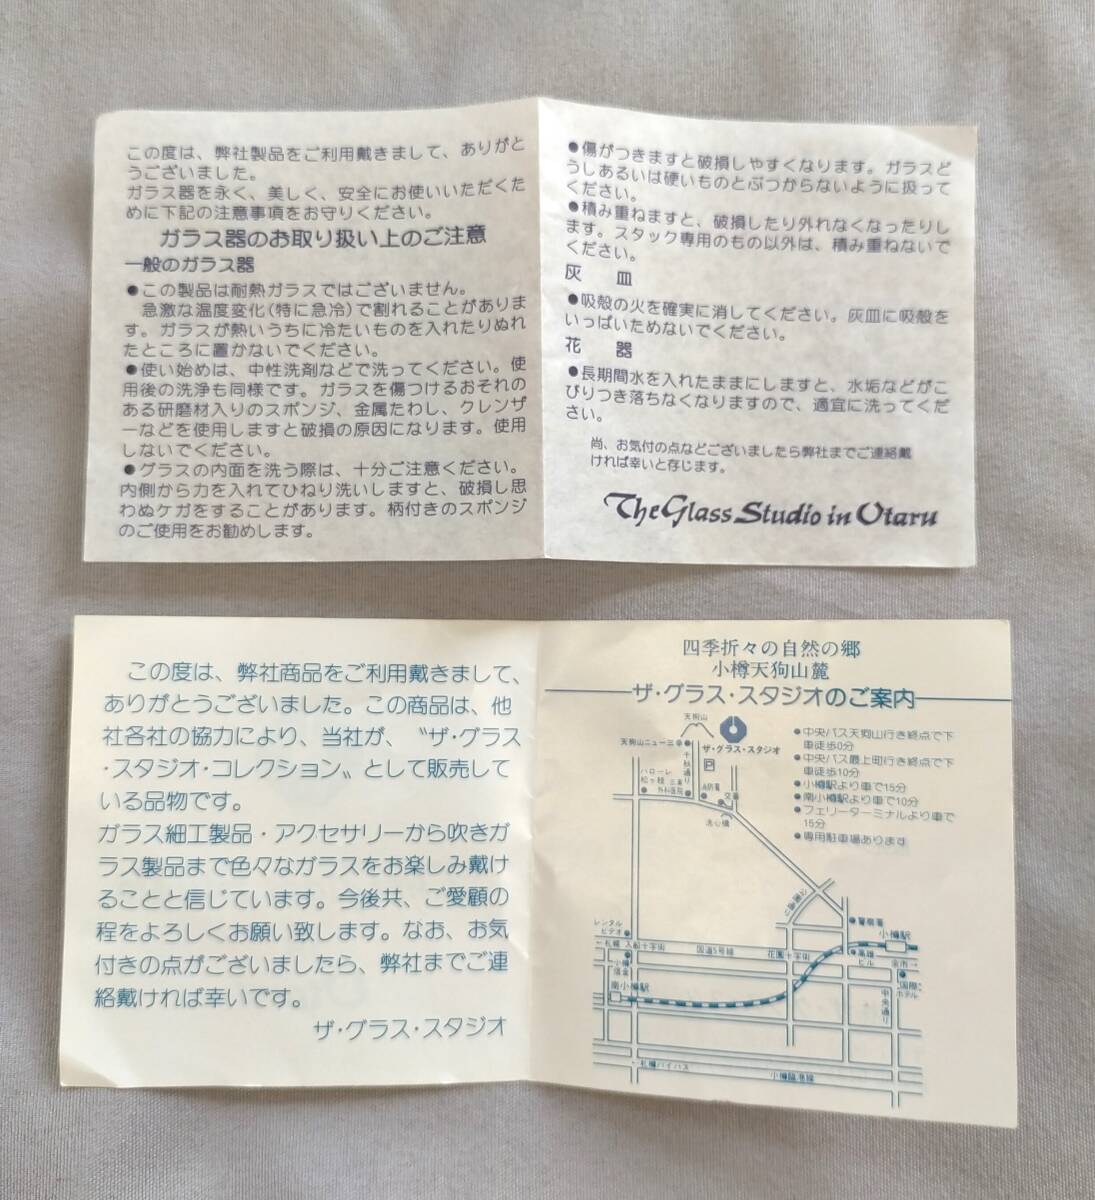 この度は、弊社製品をご利用戴きまして、ありがと
うございました。
ガラス器を永く、美しく、安全にお使いいただくた
めに下記の注意事項をお守りください。
ガラス器のお取り扱い上のご注意
一般のガラス器
●この製品は耐熱ガラスではございません。
急激な温度変化(特に急冷)で割れることがありま
す。ガラスが熱いうちに冷たいものを入れたりぬれ
たところに置かないでください。
●使い始めは、中性洗剤などで洗ってください。使
用後の洗浄も同様です。ガラスを傷つけるおそれの
ある研磨材入りのスポンジ、金属たわし、クレンザ
ーなどを使用しますと破損の原因になります。使用
しないでください。
●グラスの内面を洗う際は、十分ご注意ください。
内側から力を入れてひねり洗いしますと、破損し思
わぬケガをすることがあります。柄付きのスポンジ
のご使用をお勧めします。
●傷がつきますと破損しやすくなります。ガラスど
うしあるいは硬いものとぶつからないように扱って
ください。
●積み重ねますと、破損したり外れなくなったりし
ます。スタック専用のもの以外は、積み重ねないで
ください。
灰 皿
●吸殻の火を確実に消してください。灰皿に吸殻を
いっぱいためないでください。
花 器
●長期間水を入れたままにしますと、水垢などがこ
びりつき落ちなくなりますので、適宜に洗ってくだ
さい。
尚、お気付の点などございましたら弊社までご連絡戴
ければ幸いと存じます。
The Glass Studio in Otaru
この度は、弊社商品をご利用戴きまして、
ありがとうございました。この商品は、他
社各社の協力により、当社が、〝ザ・グラス
・スタジオ・コレクション〟として販売して
いる品物です。
ガラス細工製品・アクセサリーから吹きガ
ラス製品まで色々なガラスをお楽しみ戴け
ることと信じています。今後共、ご愛顧の
程をよろしくお願い致します。なお、お気
付きの点がございましたら、弊社までご連
絡戴ければ幸いです。
ザ・グラス・スタジオ
四季折々の自然の郷
小樽天狗山麓
ザ・グラス・スタジオのご案内
●中央バス天狗山行き終点で下
車徒歩0分
●中央バス最上町行き終点で下
車徒歩10分
●小樽駅より車で15分
●南小樽駅より車で10分
●フェリーターミナルより車で
15分
●専用駐車場あります
天狗山
天狗山ニュー三幸
ザ・グラス・スタジオ
P
ハローレ
松ヶ枝
外科医院
交番
レンタル
ビデオ
警察署
小樽駅
←札幌 入船十字街
国道5号線
花園十字街
高雄
ビル
余市→
小樽
信金
国際
ホテル
南小樽駅
中央通り
←札幌バイパス
小樽臨港線